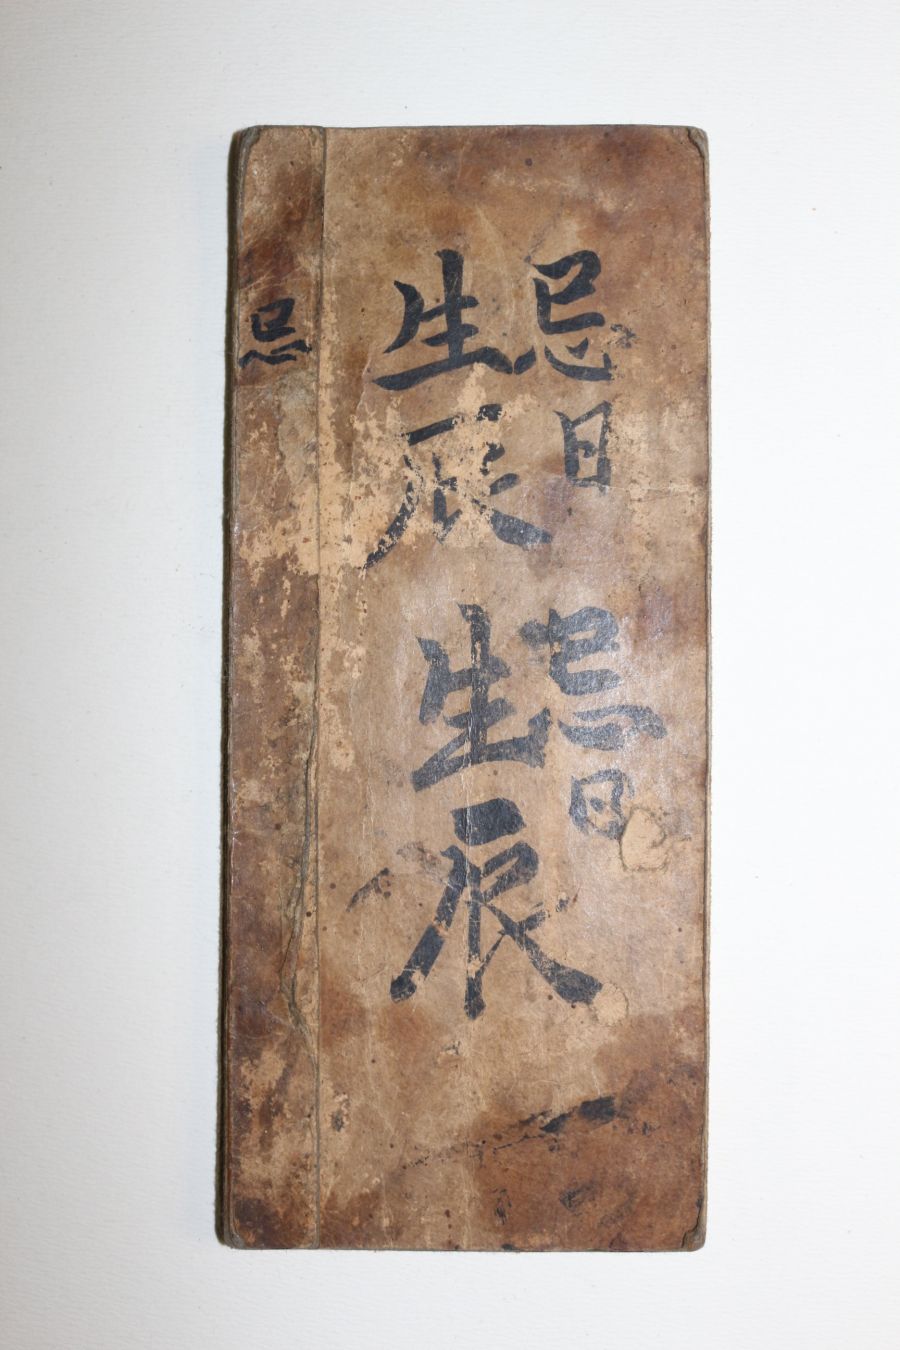 忌日 忌日
生辰 生辰
忌